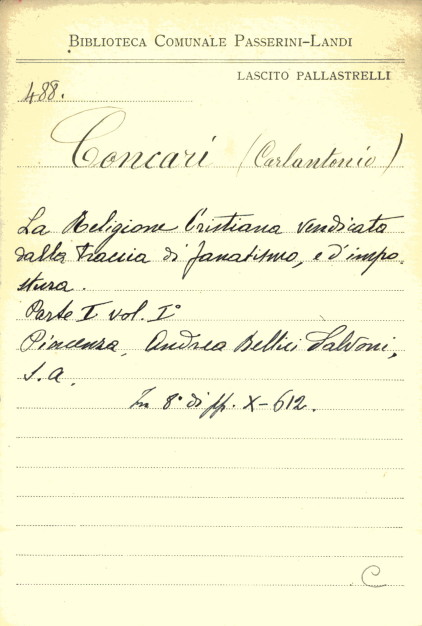 BIBLIOTECA COMUNALE PASSERINI-LANDI
LASCITO PALLASTRELLI
488.
Concari (Carlantonio)
La Religione Cristiana vendicata
dalla traccia di fanatismo, e d'impo-
stura.
Parte I vol. I°
Piacenza, Andrea Bellici Salvoni,
s.a.
In 8° di pp. X-612.
C